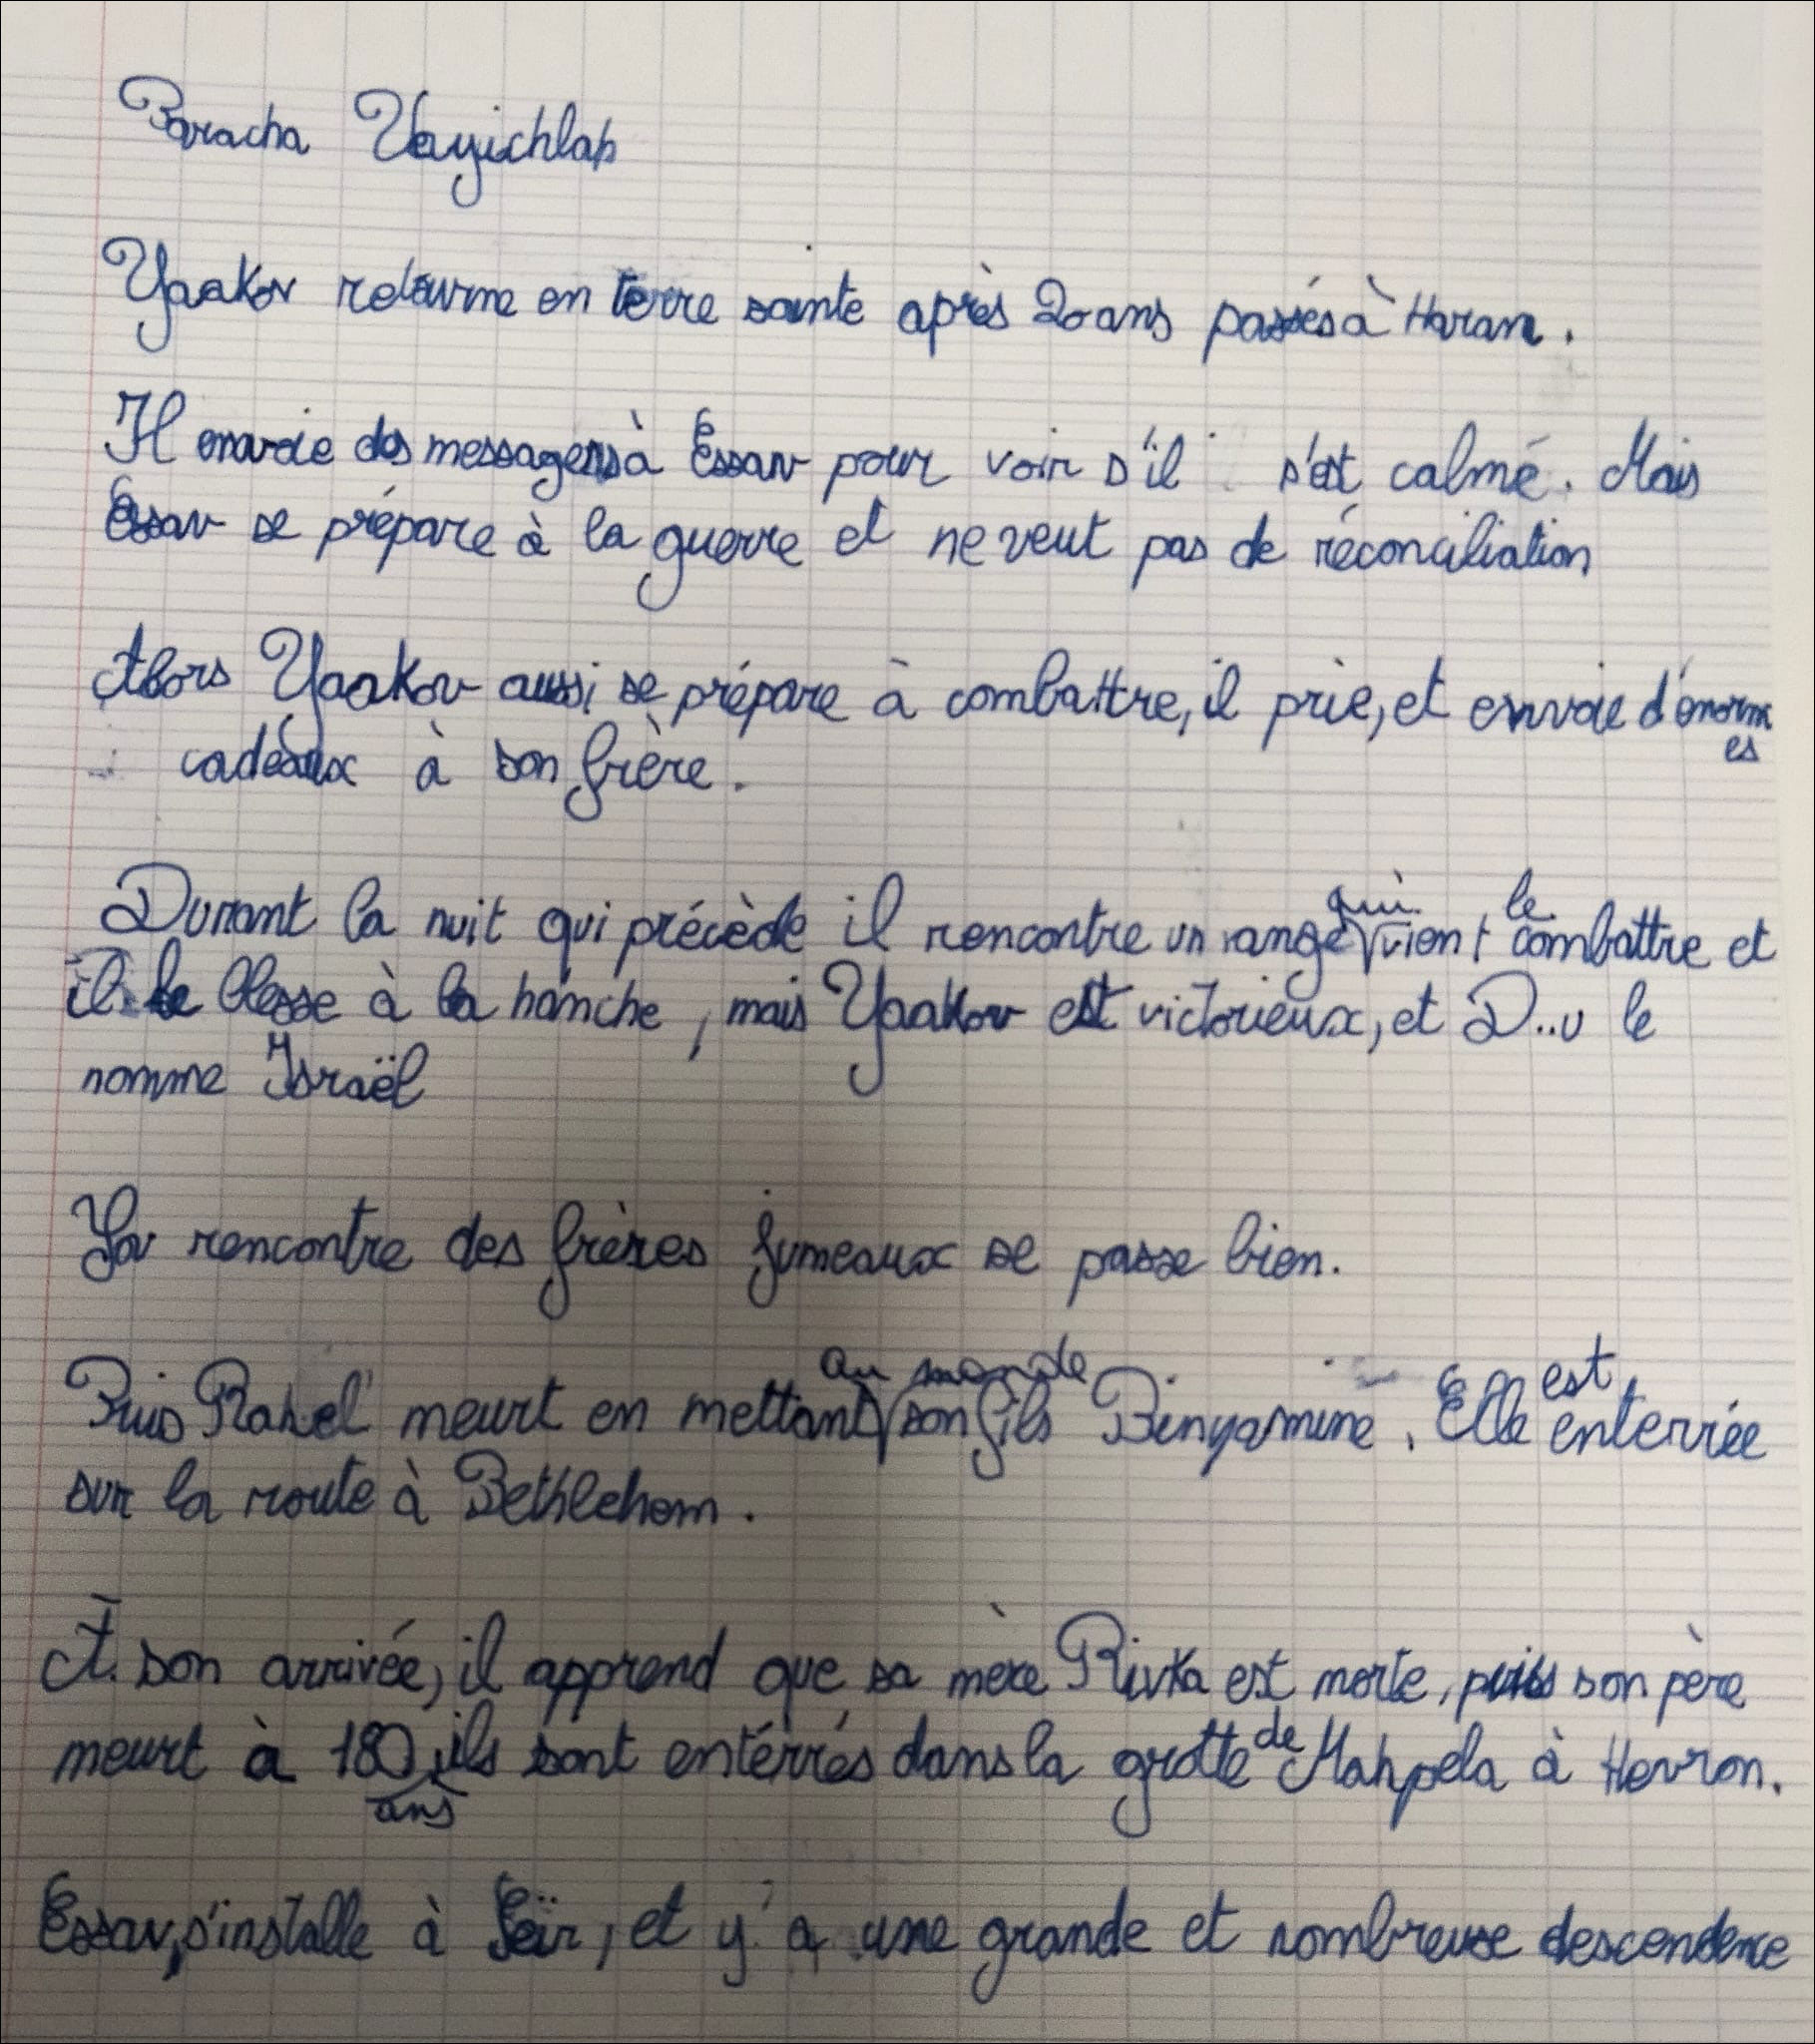 Paracha Vayichlah
Yaakov retourne en terre sainte après 20 ans passés à Haran.
Il envoie des messagers à Essav pour voir s'il s'est calmé. Mais
Essav se prépare à la guerre et ne veut pas de réconciliation
Alors Yaakov aussi se prépare à combattre, il prie, et envoie d'énormes
cadeaux à son frère.
Durant la nuit qui précède il rencontre un ange qui vient le combattre et
il le blesse à la hanche, mais Yaakov est victorieux, et D..u le
nomme Israël
La rencontre des frères jumeaux se passe bien.
Puis Rahel meurt en mettant au monde son fils Binyamine. Elle est enterrée
sur la route à Bethlehem.
À son arrivée, il apprend que sa mère Rivka est morte, puis son père
meurt à 180 ans ils sont enterrés dans la grotte de Mahpela à Hevron.
Essav, s'installe à Seïr, et y a une grande et nombreuse descendence